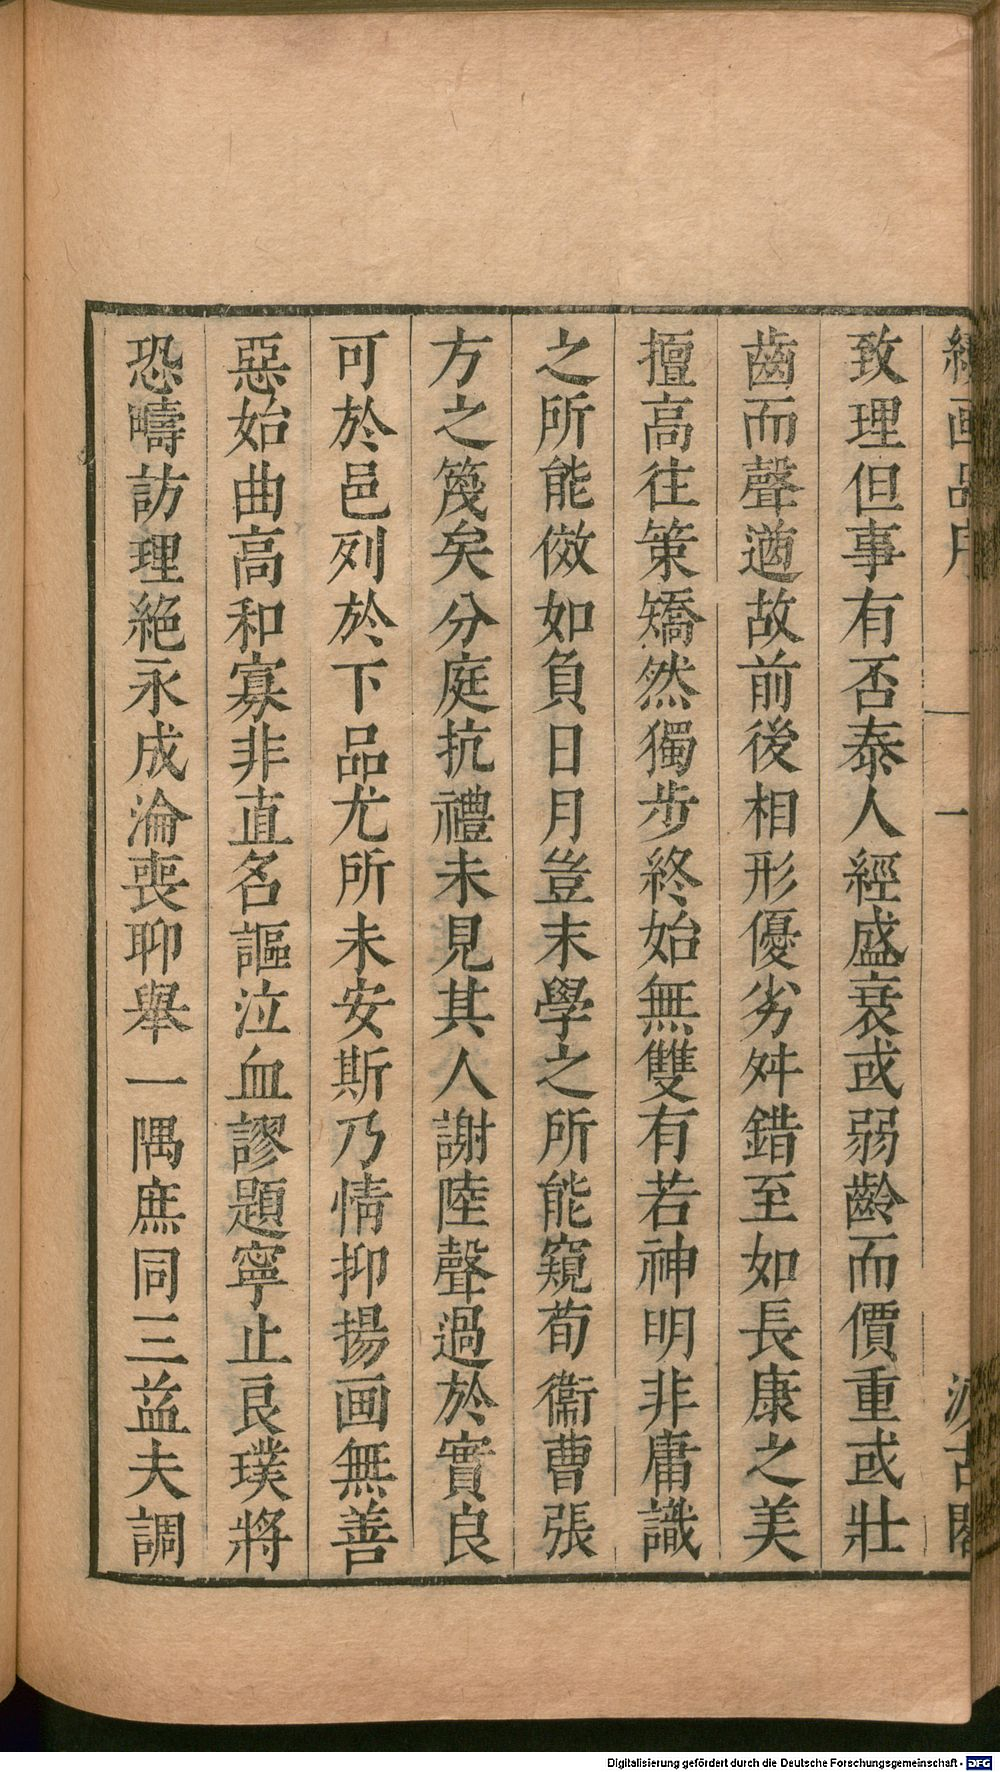 續画品序 一 汲古閣
致理但事有否泰人經盛衰或弱齡而價重或壯
齒而聲遒故前後相形優劣舛錯至如長康之美
擅高往策矯然獨步終始無雙有若神明非庸識
之所能傚如負日月豈末學之所能窺荀衞曹張
方之篾矣分庭抗禮未見其人謝陸聲過於實良
可於邑列於下品尤所未安斯乃情抑揚画無善
惡始曲高和寡非直名謳泣血謬題寧止良璞將
恐疇訪理絕永成淪喪聊舉一隅庶同三益夫調
Digitalisierung gefördert durch die Deutsche Forschungsgemeinschaft - DFG